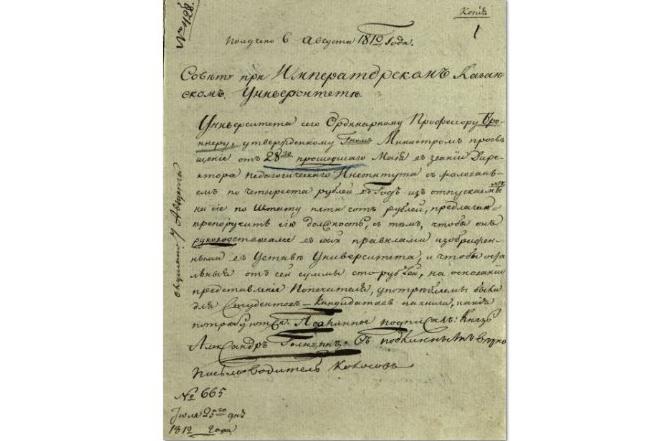 Копія
1
№ 428.
Получено 6 Августа 1812 Года.
Совѣту при Императорскомъ Казан-
скомъ Университетѣ.
Университета сего Ординарному Профессору Брон-
неру, утвержденному Министромъ просвѣ-
щенія отъ 28го прошедшаго Маія въ званіи Дире-
ктора Педагогическаго Института съ жалованіем
по четыреста рублей въ Годъ изъ отпускаемы
на сіе по Штату пяти сотъ рублей, предлагаю
препоручить сію должность, съ тѣмъ, чтобы онъ
руководствовался въ ней правилами изображен-
ными въ Уставѣ Университета; и чтобы оста-
льные отъ сей суммы сто рублей, на основаніи
представленія Попечителя, употребляемы были
для Студентовъ-кандидатовъ
Подлинное подписалъ: Князь
Александръ Голицынъ. Съ подлиннымъ вѣрно
Письмоводитель
№ 665
Іюля 25го дня
1812 года
7 Августа